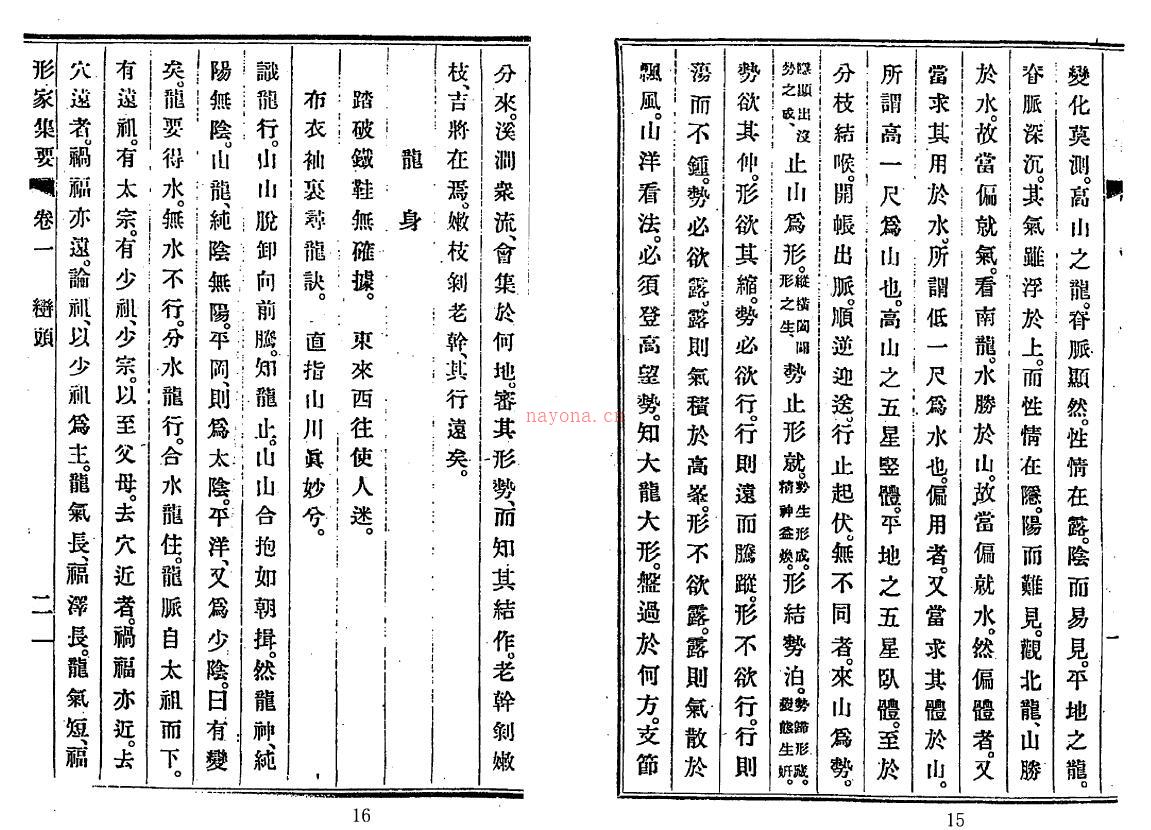 變化莫測。高山之龍。脊脈顯然。性情在露。陰而易見。平地之龍。
脊脈深沉。其氣雖浮於上。而性情在隱。陽而難見。觀北龍、山勝
於水。故當偏就氣。看南龍。水勝於山。故當偏就水。然偏體者。又
當求其用於水。所謂低一尺爲水也。偏用者。又當求其體於山。
所謂高一尺爲山也。高山之五星豎體。平地之五星臥體。至於
分枝結喉。開帳出脈。順逆迎送。行止起伏。無不同者。來山爲勢。
隱顯出沒勢之成、止山爲形。縱橫闔闢形之生、勢止形就。勢生形成。精神益煥。形結勢泊。勢歸形晟。變態生妍。
勢欲其伸。形欲其縮。勢必欲行。行則遠而騰蹤。形不欲行。行則
蕩而不鍾。勢必欲露。露則氣積於高峯。形不欲露。露則氣散於
飄風。山洋看法。必須登高望勢。知大龍大形。盤過於何方。支節
15
分來。溪澗衆流、會集於何地。審其形勢、而知其結作。老幹剝嫩
枝、吉將在焉。嫩枝剝老幹、其行遠矣。
龍身
踏破鐵鞋無確據。 東來西往使人迷。
布衣袖裏尋龍訣。 直指山川眞妙兮。
識龍行。山山脫卸向前騰。知龍止。山山合抱如朝揖。然龍神、純
陽無陰。山龍、純陰無陽。平岡、則爲太陰。平洋、又爲少陰。曰有變
矣。龍要得水。無水不行。分水龍行。合水龍住。龍脈自太祖而下。
有遠祖。有太宗。有少祖、少宗。以至父母。去穴近者。禍福亦近。去
穴遠者。禍福亦遠。論祖、以少祖爲主。龍氣長、福澤長。龍氣短、福
形家集要 卷一 巒頭 二一
16
nayona.cn